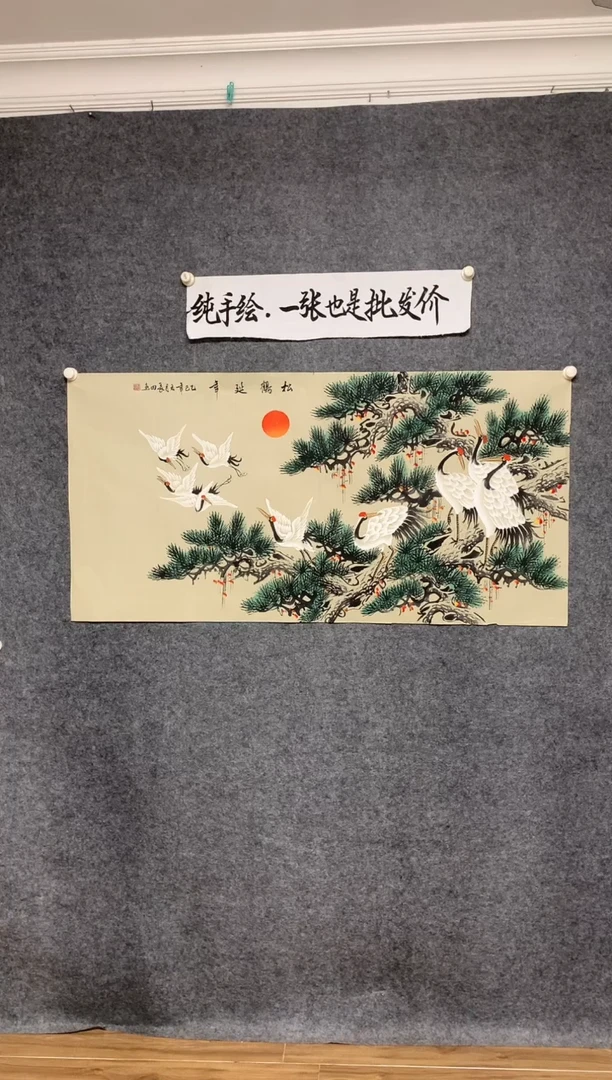 纯手绘.一张也是批发价
松鹤延年